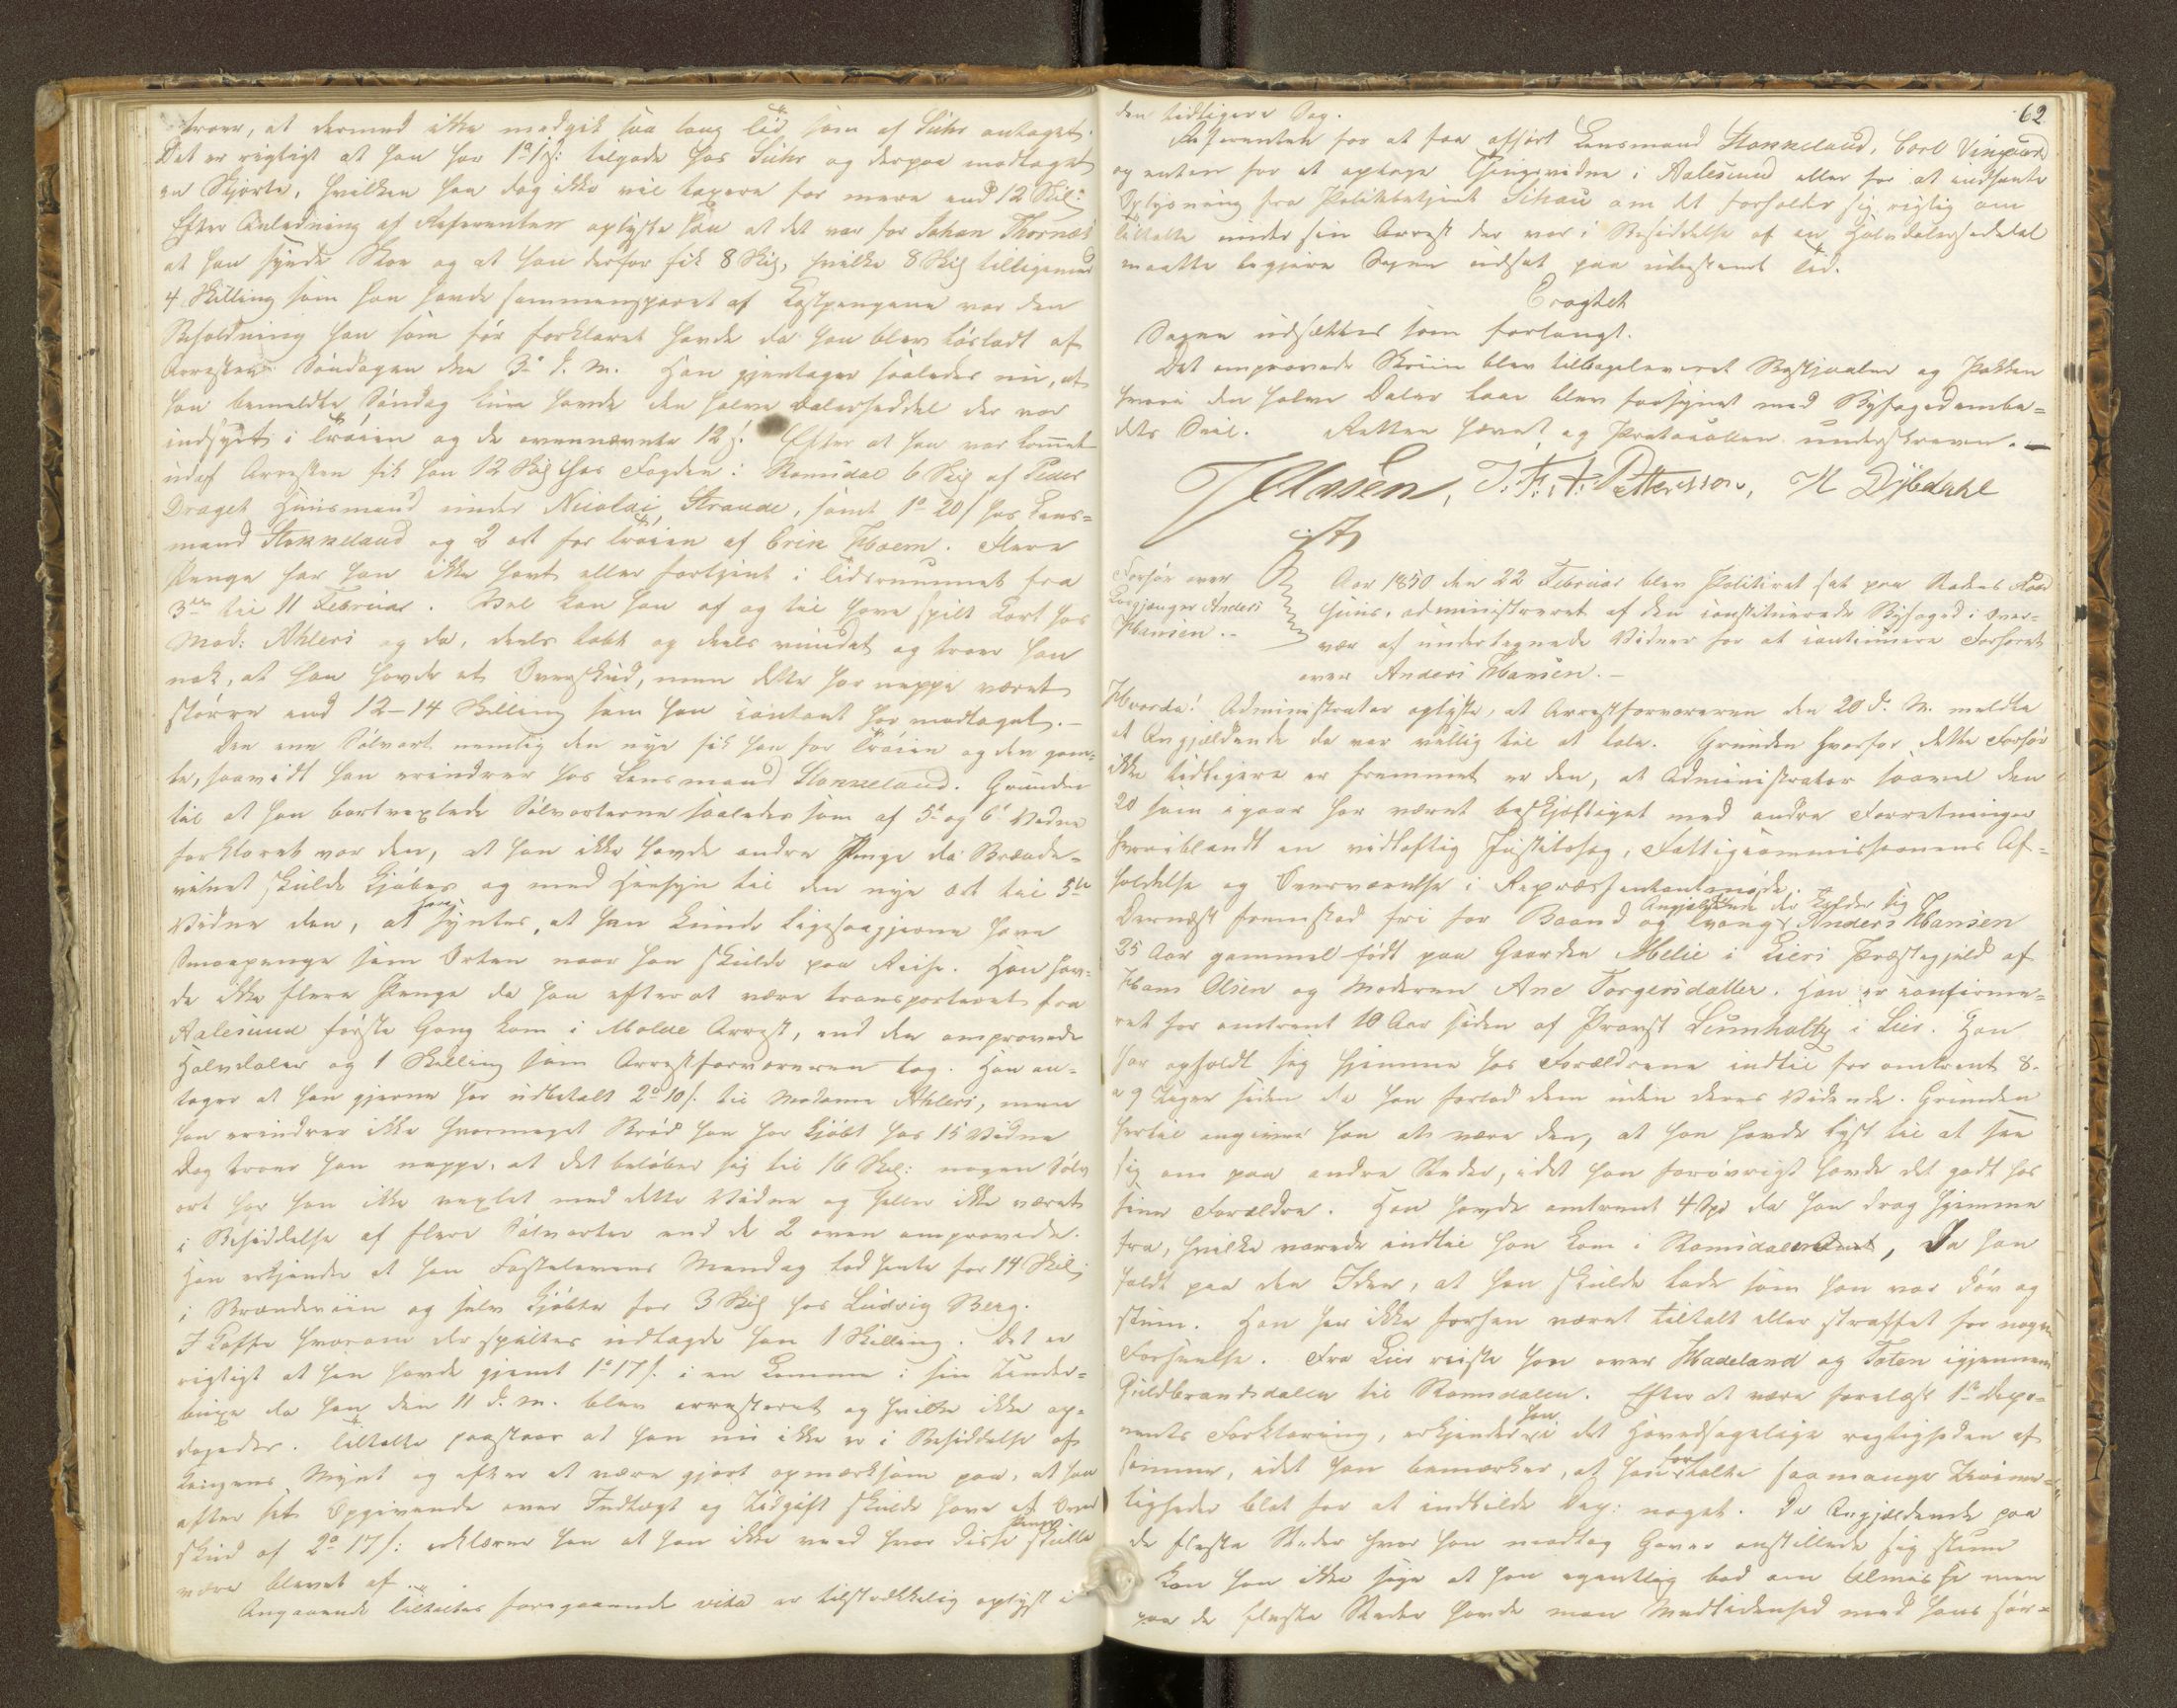 troer, at dermed ikke medgik saa lang Tid som af Suhr antaget.
Det er rigtigt at han har 1 o 1 s: tilgode hos Suhr og derpaa modtaget
en Skjorte, hvilken han dog ikke vil taxere for mere end 12 Skil:
Efter Anledning af Referenten oplyste han at det var for Johan Thornæs
at han syede Skoe og at han derfor fik 8 Skil, hvilke 8 Skil tilligemed
4 Skilling som han havde sammensparet af Kostpengene var den
Beholdning han som før forklaret havde da han blev løsladt af
Arresten Søndagen den 3 d. M. Han gjentager saaledes nu, at
han bemeldte Søndag kun havde den halve Dalerseddel der var
indsyet i Trøien og de ovennævnte 12 s. Efter at han var kommet
ud af Arresten fik han 12 Skil hos Fogden i Romsdal 6 Skil af Peder
Draget Huusmand under Nicolai Strande, samt 1 o 20 s hos Lens-
mand Stokkeland og 2 ort for Trøien af Erik Hoem. Flere
Penge har han ikke havt eller fortjent i Tidsrummet fra
3die til 11 Februar. Vel kan han af og til have spilt Kort hos
Mad: Ahlers og da, deels tabt og deels vundet og troer han
nok, at han havde et Overskud, men dette har neppe været
større end 12-14 Skilling som han contant har modtaget.-
Den ene Sølvort nemlig den nye fik han for Trøien og den gam-
le, saavidt han erindrer hos Lensmand Stokkeland. Grunden
til at han bortvexlede Sølvorterne saaledes som af 5te og 6te Vidne
forklaret var den, at han ikke havde andre Penge da Brænde-
vinet skulde kjøbes og med Hensyn til den nye Ort til 5te
Vidne den, at han syntes, at han kunde ligesaagjerne have
Smaapenge som Orten naar han skulde paa Reise. Han hav-
de ikke flere Penge da han efter at være transporteret fra
Aalesund første Gang kom i Molde Arrest, end den omprovede
Halvdaler og 1 Skilling som Arrestforvareren tog. Han an-
tager at han gjerne har udbetalt 2 o 10 s. til Madame Ahlers, men
han erindrer ikke hvormeget Brød han har kjøbt hos 15 Vidne
Dog troer han neppe, at det beløber sig til 16 Skil: nogen Sølv
ort har han ikke vexlet med dette Vidne og heller ikke været
i Besiddelse af flere Sølvorter end de 2 oven omprovede.
Han erkjender at han Fastelavens Mandag lod hente for 14 Skil
i Brændeviin og selv kjøbte for 3 Skil hos Ludvig Berg.
I Kaffe hvorom der spiltes udlagde han 1 Skilling. Det er
rigtigt at han havde gjemt 1 o 17 s. i en Lomme i sin Under-
buxe da han den 11 d. M. blev arresteret og hvilke ikke op-
dagedes. Tiltalte paastaar at han nu ikke er i Besiddelse af
Kongens Mynt og efter at være gjort opmærksom paa, at han
efter sit Opgivende over Indtægt og Udgift skulde have et Over
skud af 2 o 17 s: erklærer han at han ikke veed hvor disse Penge skulle
være blevet af.
Angaaende Tiltaltes foregaaende vita er tilstrækkelig oplyst i
62
den tidligere Sag.
Referenten for at faa afhørt Lensmand Stokkeland, Carl
og enten for at optage Thingsvidne i Aalesund eller for at indhente
Oplysning fra Politibetjent Schau om det forholder sig rigtig om
Tiltalte under sin Arrest der var i Besiddelse af en Halvdalerseddel
maatte begjære Sagen udsat paa ubestemt Tid.
Eragtet
Sagen udsættes som forlangt.
Det omprovede Skriin blev tilbageleveret og Pakken
hvori den halve Daler laae blev forsynet med Byfogedembe-
dets Seil. Retten hævet og Protocollen underskreven.-
J. F. A. Pettersson, K Dybdahl
Forhør over
Løsgjænger Anders
Hansen.-
Aar 1850 den 22 Februar blev Politiret sat paa Stadens Raad
huus, administreret af den constituerede Byfoged i Over-
vær af undertegnede Vidner for at continuere Forhøret
over Anders Hansen.-
Hvorda! Administrator oplyste, at Arrestforvareren den 20 d. M. meldte
at Angjældende da var villig til at tale. Grunden hvorfor dette Forhør
ikke tidligere er fremmet er den, at Administrator saavel den
20 som igaar har været beskjæftiget med andre Forretninger
hvoriblandt en vidløftig Justitssag, Fattigcommissionens Af-
holdelse og Overværelse i Repræsentantmøde.
Dernæst fremstod fri for Baand og Tvang Angjældende der kalder sig Anders Hansen
25 Aar gammel født paa Gaarden Melie i Liers Præstegjeld af
Hans Olsen og Moderen Ane Torgersdatter. Han er confirme-
ret for omtrent 10 Aar siden af Provst Lumholtz i Lier. Han
har opholdt sig hjemme hos Forældrene indtil for omtrent 8-
a 9 Uger siden da han forlod dem uden deres Vidende. Grunden
hertil angiver han at være den, at han havde Lyst til at see
sig om paa andre Steder, idet han forøvrigt havde det godt hos
sine Forældre. Han havde omtrent 4 Spd da han drog hjemme
fra, hvilke varede indtil han kom i Romsdalen, da han
faldt paa den Idee, at han skulde lade som han var døv og
stum. Han har ikke forhen været tiltalt eller straffet for nogen
Forseelse. Fra Lier reiste han over Hadeland og Toten igjennem
Guldbrandsdalen til Romsdalen. Efter at være forelæst 1ste Depo-
nents Forklaring, erkjender han i det Hovedsagelige rigtigheden af
samme, idet han bemærker, at han fortalte saa mange Urime-
ligheder blot for at indbilde Dep: noget. Da Angjældende paa
de fleste Steder hvor han modtog Gaver anstillede sig stum
kan han ikke sige at han egentlig bad om Almisse men
paa de fleste Steder havde man Medlidenhed med hans før-